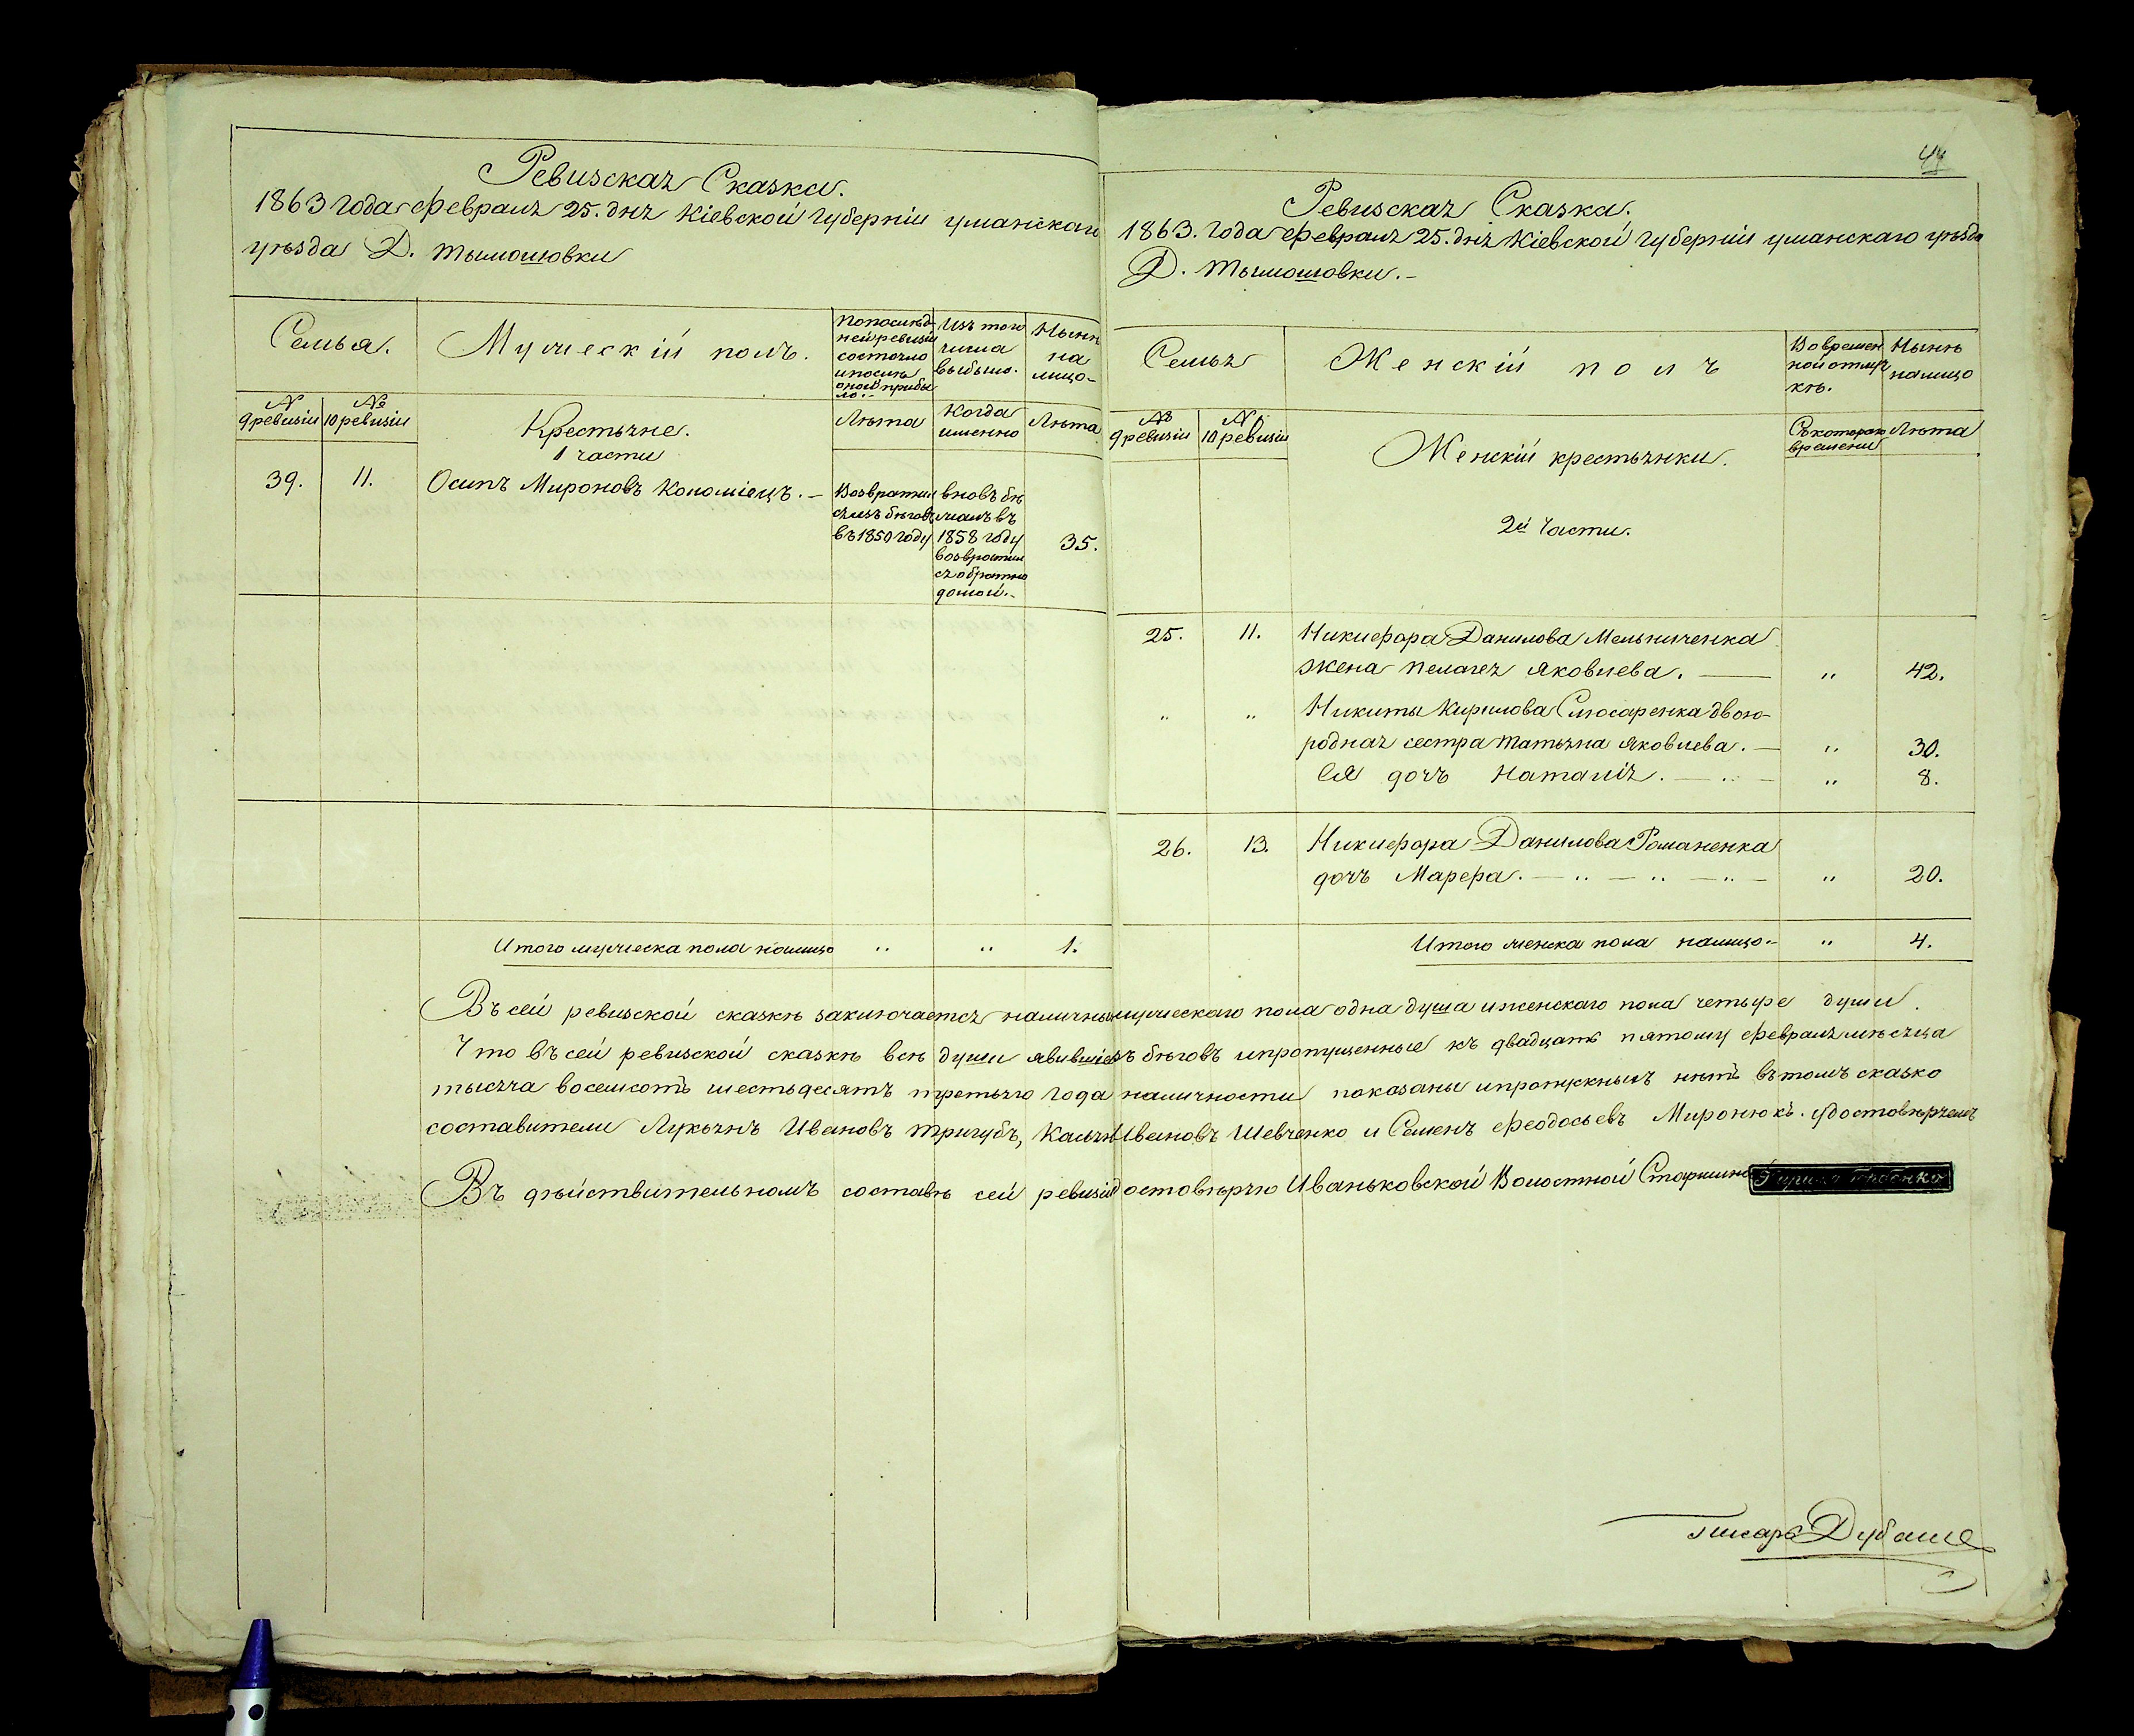 Ревизская Сказка.
1863 года февраля 25. дня Кіевской губерніи уманскаго
уѣзда Д. тымошовки
Семья.
Мужескій полъ.
По послѣд-
ней ревизіи
состояло
и послѣ
оной прибы
ло.
Изъ того
числа
выбыло.
Нынѣ
на
лицо
№
9 ревизіи
№
10 ревизіи
Крестьяне.
1 части
Лѣта
Когда
именно
Лѣта
39.
11.
Осипъ Мироновъ Коломіецъ. —
Возвратил
ся изъ бѣговъ
въ 1850 году
вновь бѣ
жалъ въ
1858 году
возвратил
ся обратно
домой.
35.
Итого мужеска пола налицо „ „ 1.
44
Ревизская Сказка.
1863. года февраля 25. дня Кіевской губерніи уманскаго уѣзда
Д. тымошовки. -
Семья
Женскій полъ
Во времен
ной отлуч
кѣ.
Нынѣ
налицо
№
9 ревизіи
№
10 ревизіи
Женскій крестьянки.
Съ котораго
времени
Лѣта
2й Части.
25. 11. Никифора Данилова Мельниченка
жена Пелагея Яковлева. — „ 42.
„ „ Никиты Кирилова Слюсаренка двою-
родная сестра татьяна Яковлева. — „ 30.
Ея дочъ Наталія. — „ — „ 8.
26. 13. Никифора Данилова Романенка
дочъ Марфа. — „ — „ — „ — „ 20.
Итого женска пола налицо - „ 4.
Въ сей ревизской сказкѣ заключается наличных мужескаго пола одна душа и женскаго пола четыре души.
Что въ сей ревизской сказкѣ всѣ души явившіесь съ бѣговъ и пропущенные къ двадцать пятому февраля мѣсяца
тысяча восемсотъ шестьдесятъ третьяго года наличности показаны и пропускныхъ нѣтъ въ томъ сказко
составители Лукьянъ Ивановъ тригубъ, Касьян Ивановъ Шевченко и Семенъ Феодосьевъ Миронюкъ. удостовѣряемъ
Въ дѣйствительномъ составѣ сей ревизіи достовѣряю Иваньковской Волостной Старшина
Писарь